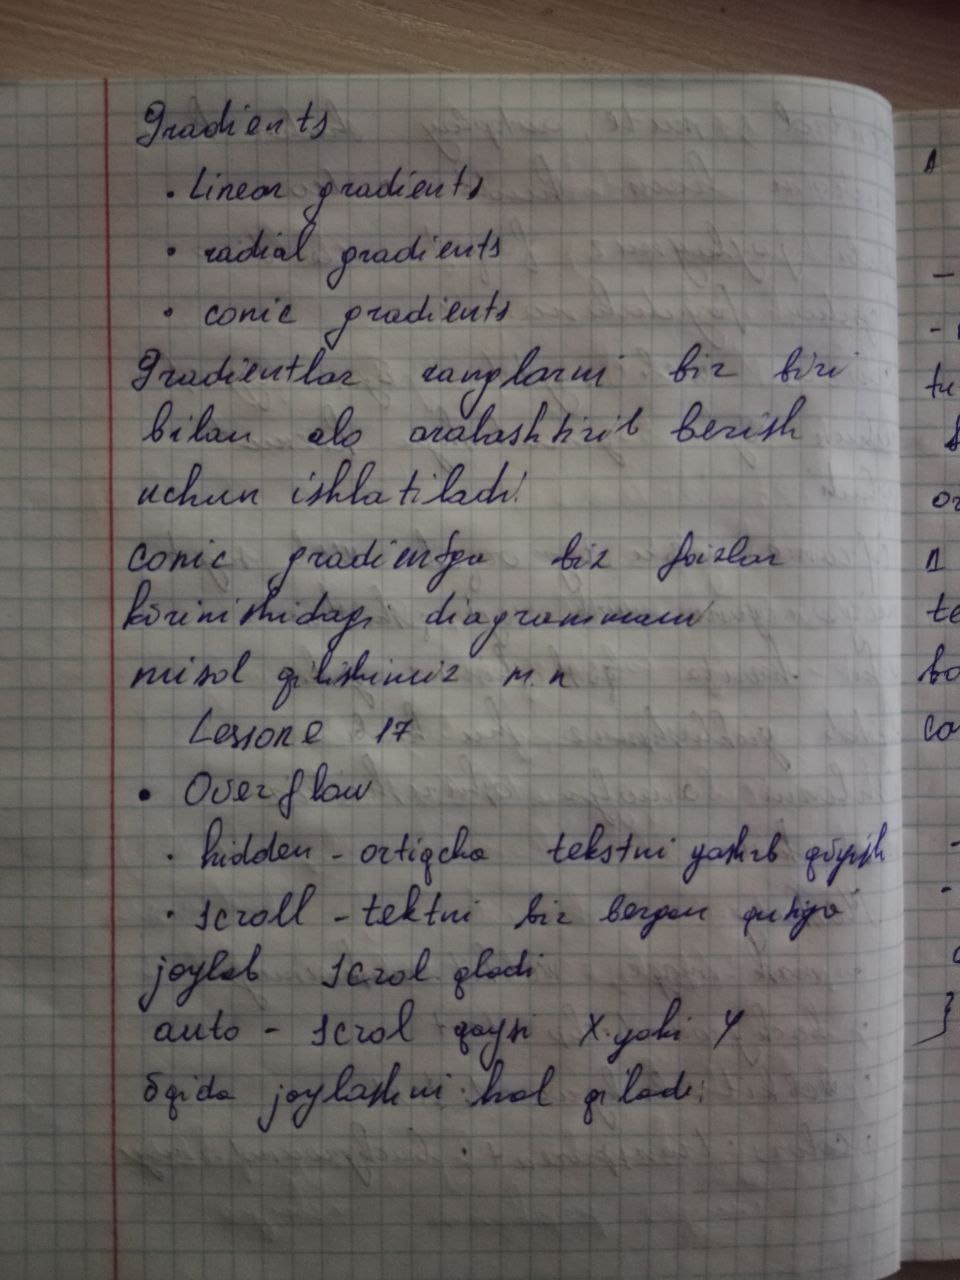 Gradients
• Linear gradients
• radial gradients
• conic gradients
Gradientlar ranglarni bir biri
bilan alo aralashtirib berish
uchun ishlatiladi
conic gradientga biz foizlar
kōrinishidagi diagrammani
misol qilishimiz m.n
Lessone 17
• Overflow
• hidden - ortiqcha tekstni yashrib qōyish
• scroll - tektni biz bergan qutiga
joylab scrol qladi
auto - scrol qaysi X yoki Y
ōqida joylashni hal qiladi